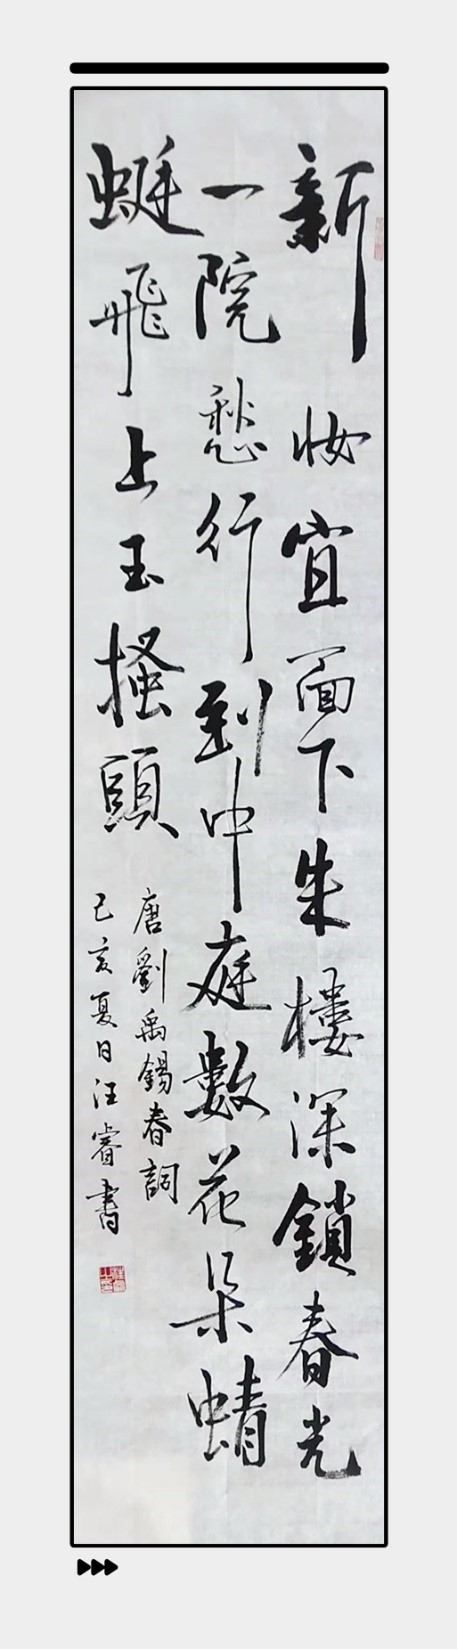 新妝宜面下朱樓深鎖春光
一院愁行到中庭數花朵蜻
蜓飛上玉搔頭
唐劉禹錫春詞
己亥夏日汪睿書